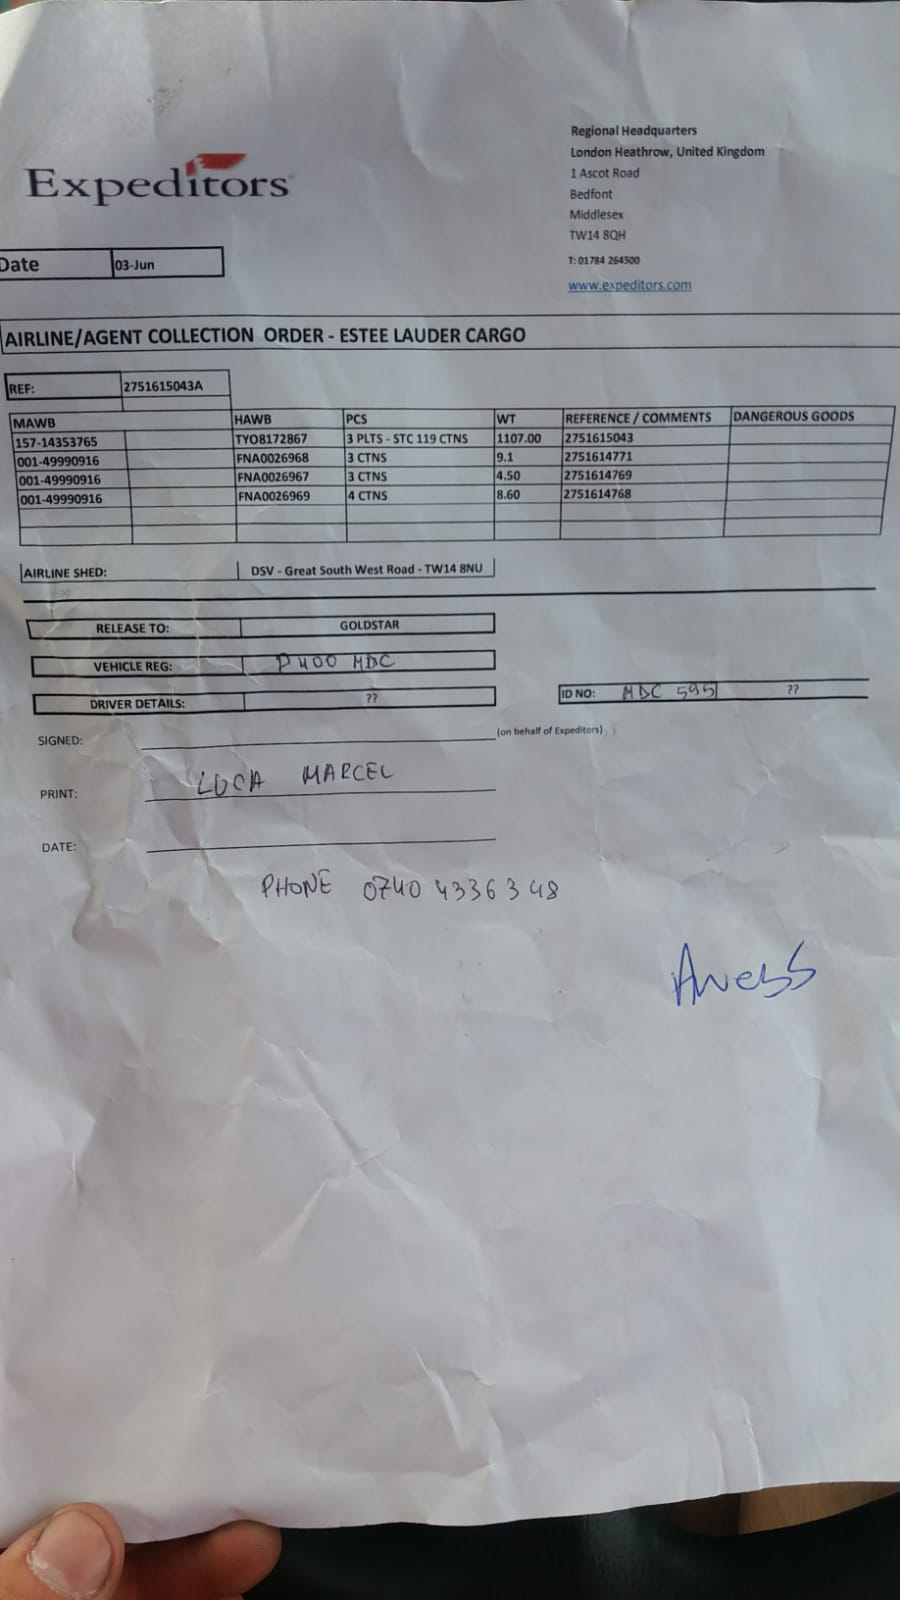 Expeditors
Regional Headquarters
London Heathrow, United Kingdom
1 Ascot Road
Bedfont
Middlesex
TW14 8QH
T: 01784 264500
www.expeditors.com
Date 03-Jun
AIRLINE/AGENT COLLECTION ORDER - ESTEE LAUDER CARGO
REF: 2751615043A
MAWB HAWB PCS WT REFERENCE / COMMENTS DANGEROUS GOODS
157-14353765 TYO8172867 3 PLTS - STC 119 CTNS 1107.00 2751615043
001-49990916 FNA0026968 3 CTNS 9.1 2751614771
001-49990916 FNA0026967 3 CTNS 4.50 2751614769
001-49990916 FNA0026969 4 CTNS 8.60 2751614768
AIRLINE SHED: DSV - Great South West Road - TW14 8NU
RELEASE TO: GOLDSTAR
VEHICLE REG: P400 MDC
DRIVER DETAILS: ?? ID NO: MDC 595 ??
SIGNED: (on behalf of Expeditors)
PRINT: LUCA MARCEL
DATE:
PHONE 0740 4336348